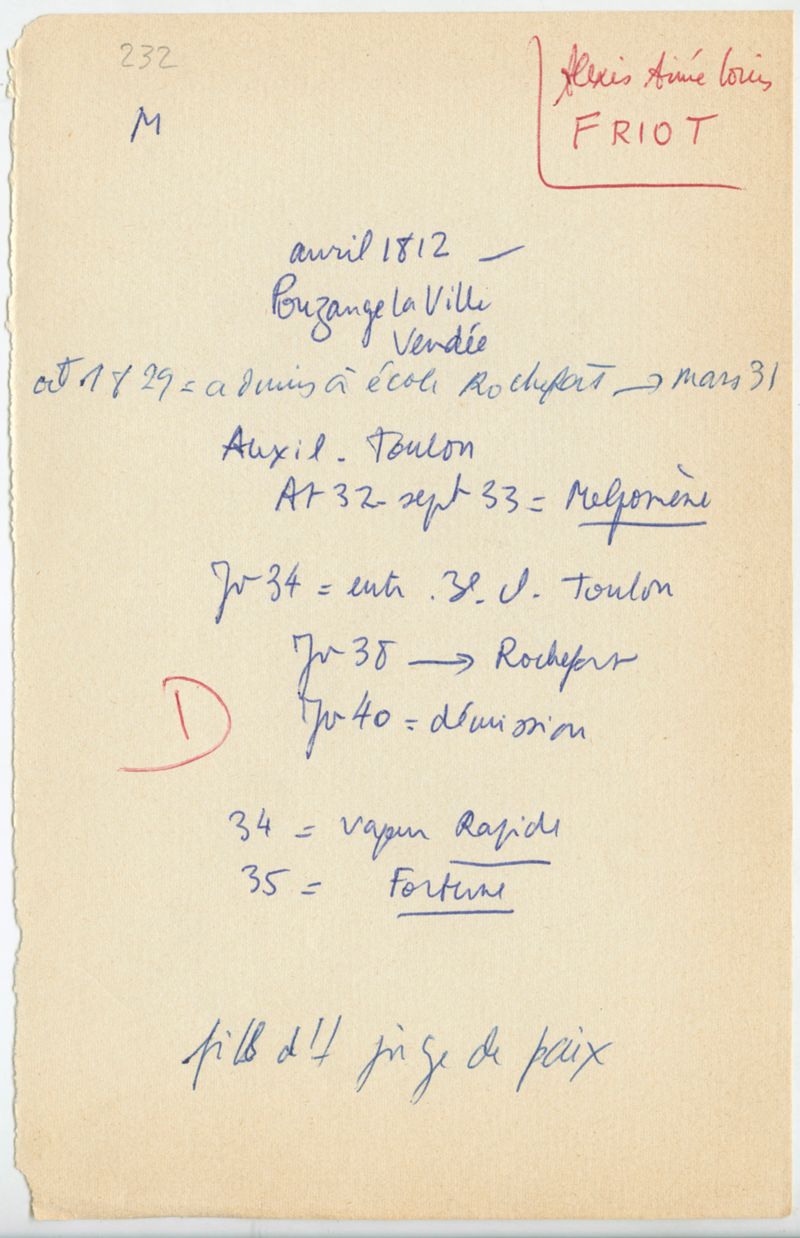 232
Alexis Aimé Louis
FRIOT
M
avril 1812 —
Pouzange la Ville
Vendée
oct 1829 = admis à école Rochefort → mars 31
Auxil. Toulon
At 32 - sept 33 = Melpomène
Jv 34 = entr. 3e. cl. Toulon
Jv 38 → Rochefort
Jv 40 = démission
D
34 = vapeur Rapide
35 = Fortune
fils d'1 juge de paix